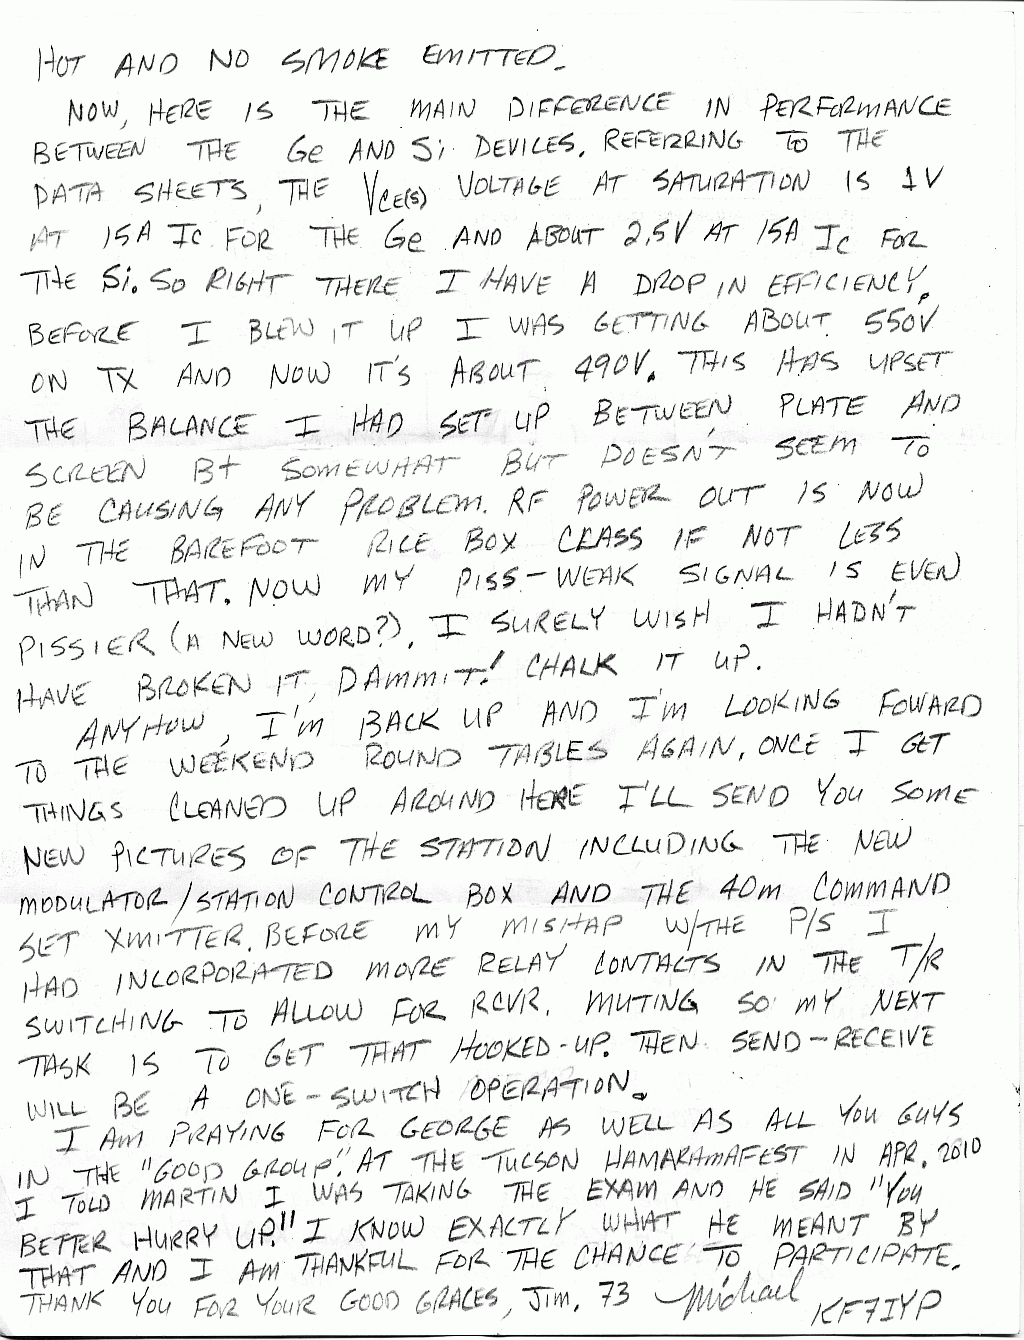 HOT AND NO SMOKE EMITTED.
NOW, HERE IS THE MAIN DIFFERENCE IN PERFORMANCE
BETWEEN THE Ge AND Si DEVICES. REFERRING TO THE
DATA SHEETS, THE VCE(S) VOLTAGE AT SATURATION IS 1V
AT 15A IC FOR THE Ge AND ABOUT 2.5V AT 15A IC FOR
THE Si. SO RIGHT THERE I HAVE A DROP IN EFFICIENCY.
BEFORE I BLEW IT UP I WAS GETTING ABOUT 550V
ON TX AND NOW IT'S ABOUT 490V. THIS HAS UPSET
THE BALANCE I HAD SET UP BETWEEN PLATE AND
SCREEN B+ SOMEWHAT BUT DOESN'T SEEM TO
BE CAUSING ANY PROBLEM. RF POWER OUT IS NOW
IN THE BAREFOOT RICE BOX CLASS IF NOT LESS
THAN THAT. NOW MY PISS-WEAK SIGNAL IS EVEN
PISSIER (A NEW WORD?). I SURELY WISH I HADN'T
HAVE BROKEN IT, DAMMIT! CHALK IT UP.
ANYHOW, I'M BACK UP AND I'M LOOKING FOWARD
TO THE WEEKEND ROUND TABLES AGAIN. ONCE I GET
THINGS CLEANED UP AROUND HERE I'LL SEND YOU SOME
NEW PICTURES OF THE STATION INCLUDING THE NEW
MODULATOR/STATION CONTROL BOX AND THE 40m COMMAND
SET XMITTER. BEFORE MY MISHAP W/THE P/S I
HAD INCORPORATED MORE RELAY CONTACTS IN THE T/R
SWITCHING TO ALLOW FOR RCVR. MUTING SO MY NEXT
TASK IS TO GET THAT HOOKED-UP. THEN SEND-RECEIVE
WILL BE A ONE-SWITCH OPERATION.
I AM PRAYING FOR GEORGE AS WELL AS ALL YOU GUYS
IN THE "GOOD GROUP". AT THE TUCSON HAMARAMAFEST IN APR. 2010
I TOLD MARTIN I WAS TAKING THE EXAM AND HE SAID "YOU
BETTER HURRY UP." I KNOW EXACTLY WHAT HE MEANT BY
THAT AND I AM THANKFUL FOR THE CHANCE TO PARTICIPATE.
THANK YOU FOR YOUR GOOD GRACES, JIM. 73 Michael KF7IYP